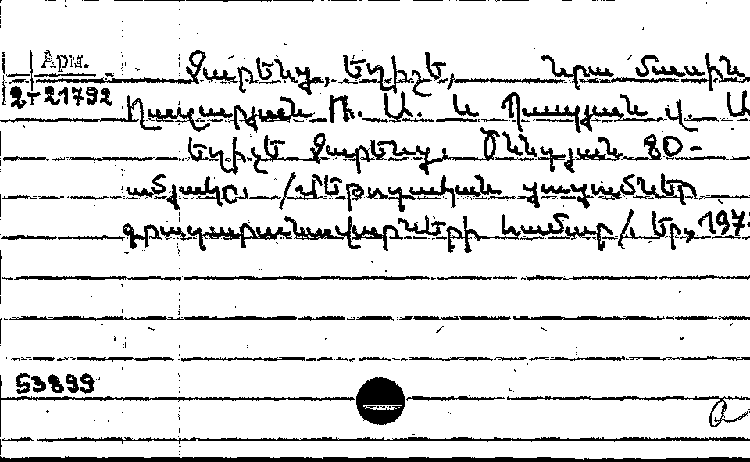 Арм.
Չարենց, Եղիշե, նրա մասին
2-21792
Ղազարյան Ռ. Ա. և Պապյան Վ. Ա
Եղիշե Չարենց. Ծննդյան 80-
ամյակը. /Մեթոդական ցուցումներ
գրադարանավարների համար/. Եր., 197
53899
a